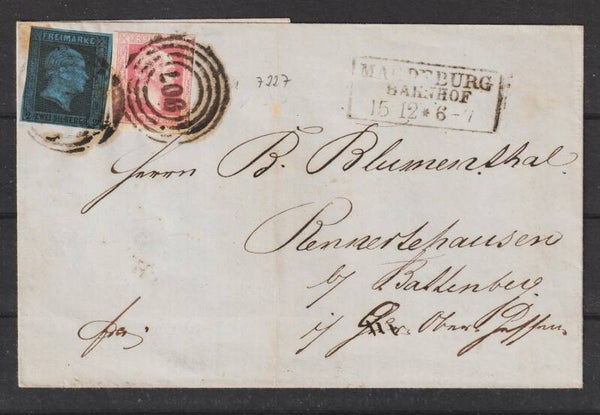 FREIMARKE
907
7227
MAGDEBURG
BAHNHOF
15 12 * 6-7
Herrn B. Blumenthal.
Rennertehausen
b/ Battenberg
i/ Ober Hessen.
frei